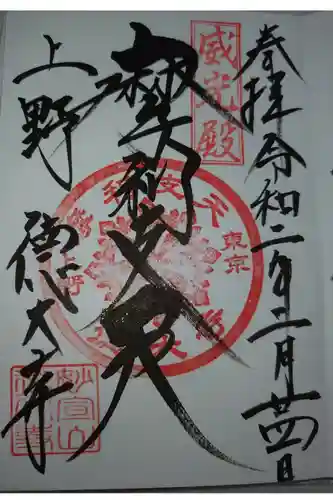 奉拝 令和二年二月廿四日
威光殿
摩利支天
東京
上野
上野
徳大寺
妙宣山
徳大寺